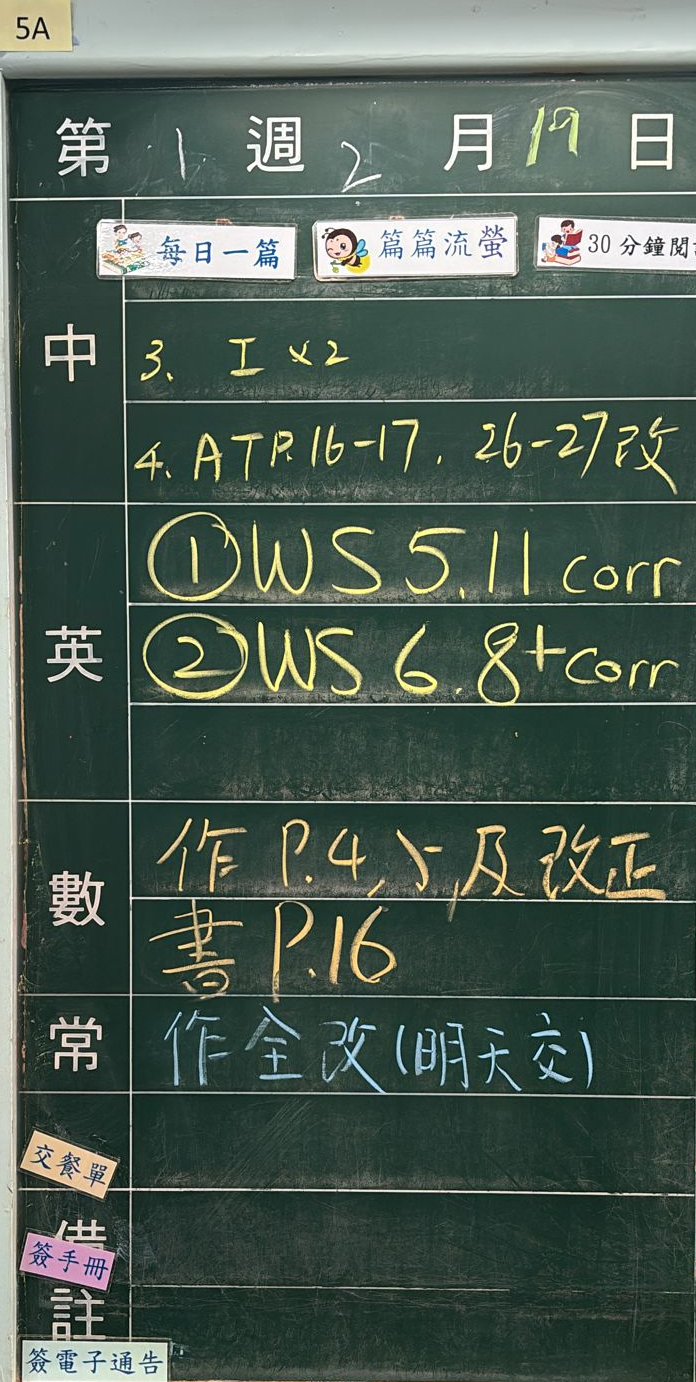 5A
第 1 週 2 月 19 日
每日一篇 篇篇流螢 30分鐘閱
中
3. I x2
4. ATP.16-17, 26-27改
英
①WS 5.11 corr
②WS 6.8+corr
數
作 P.4,5,及改正
書 P.16
常
作全改(明天交)
交餐單
備
簽手冊
註
簽電子通告